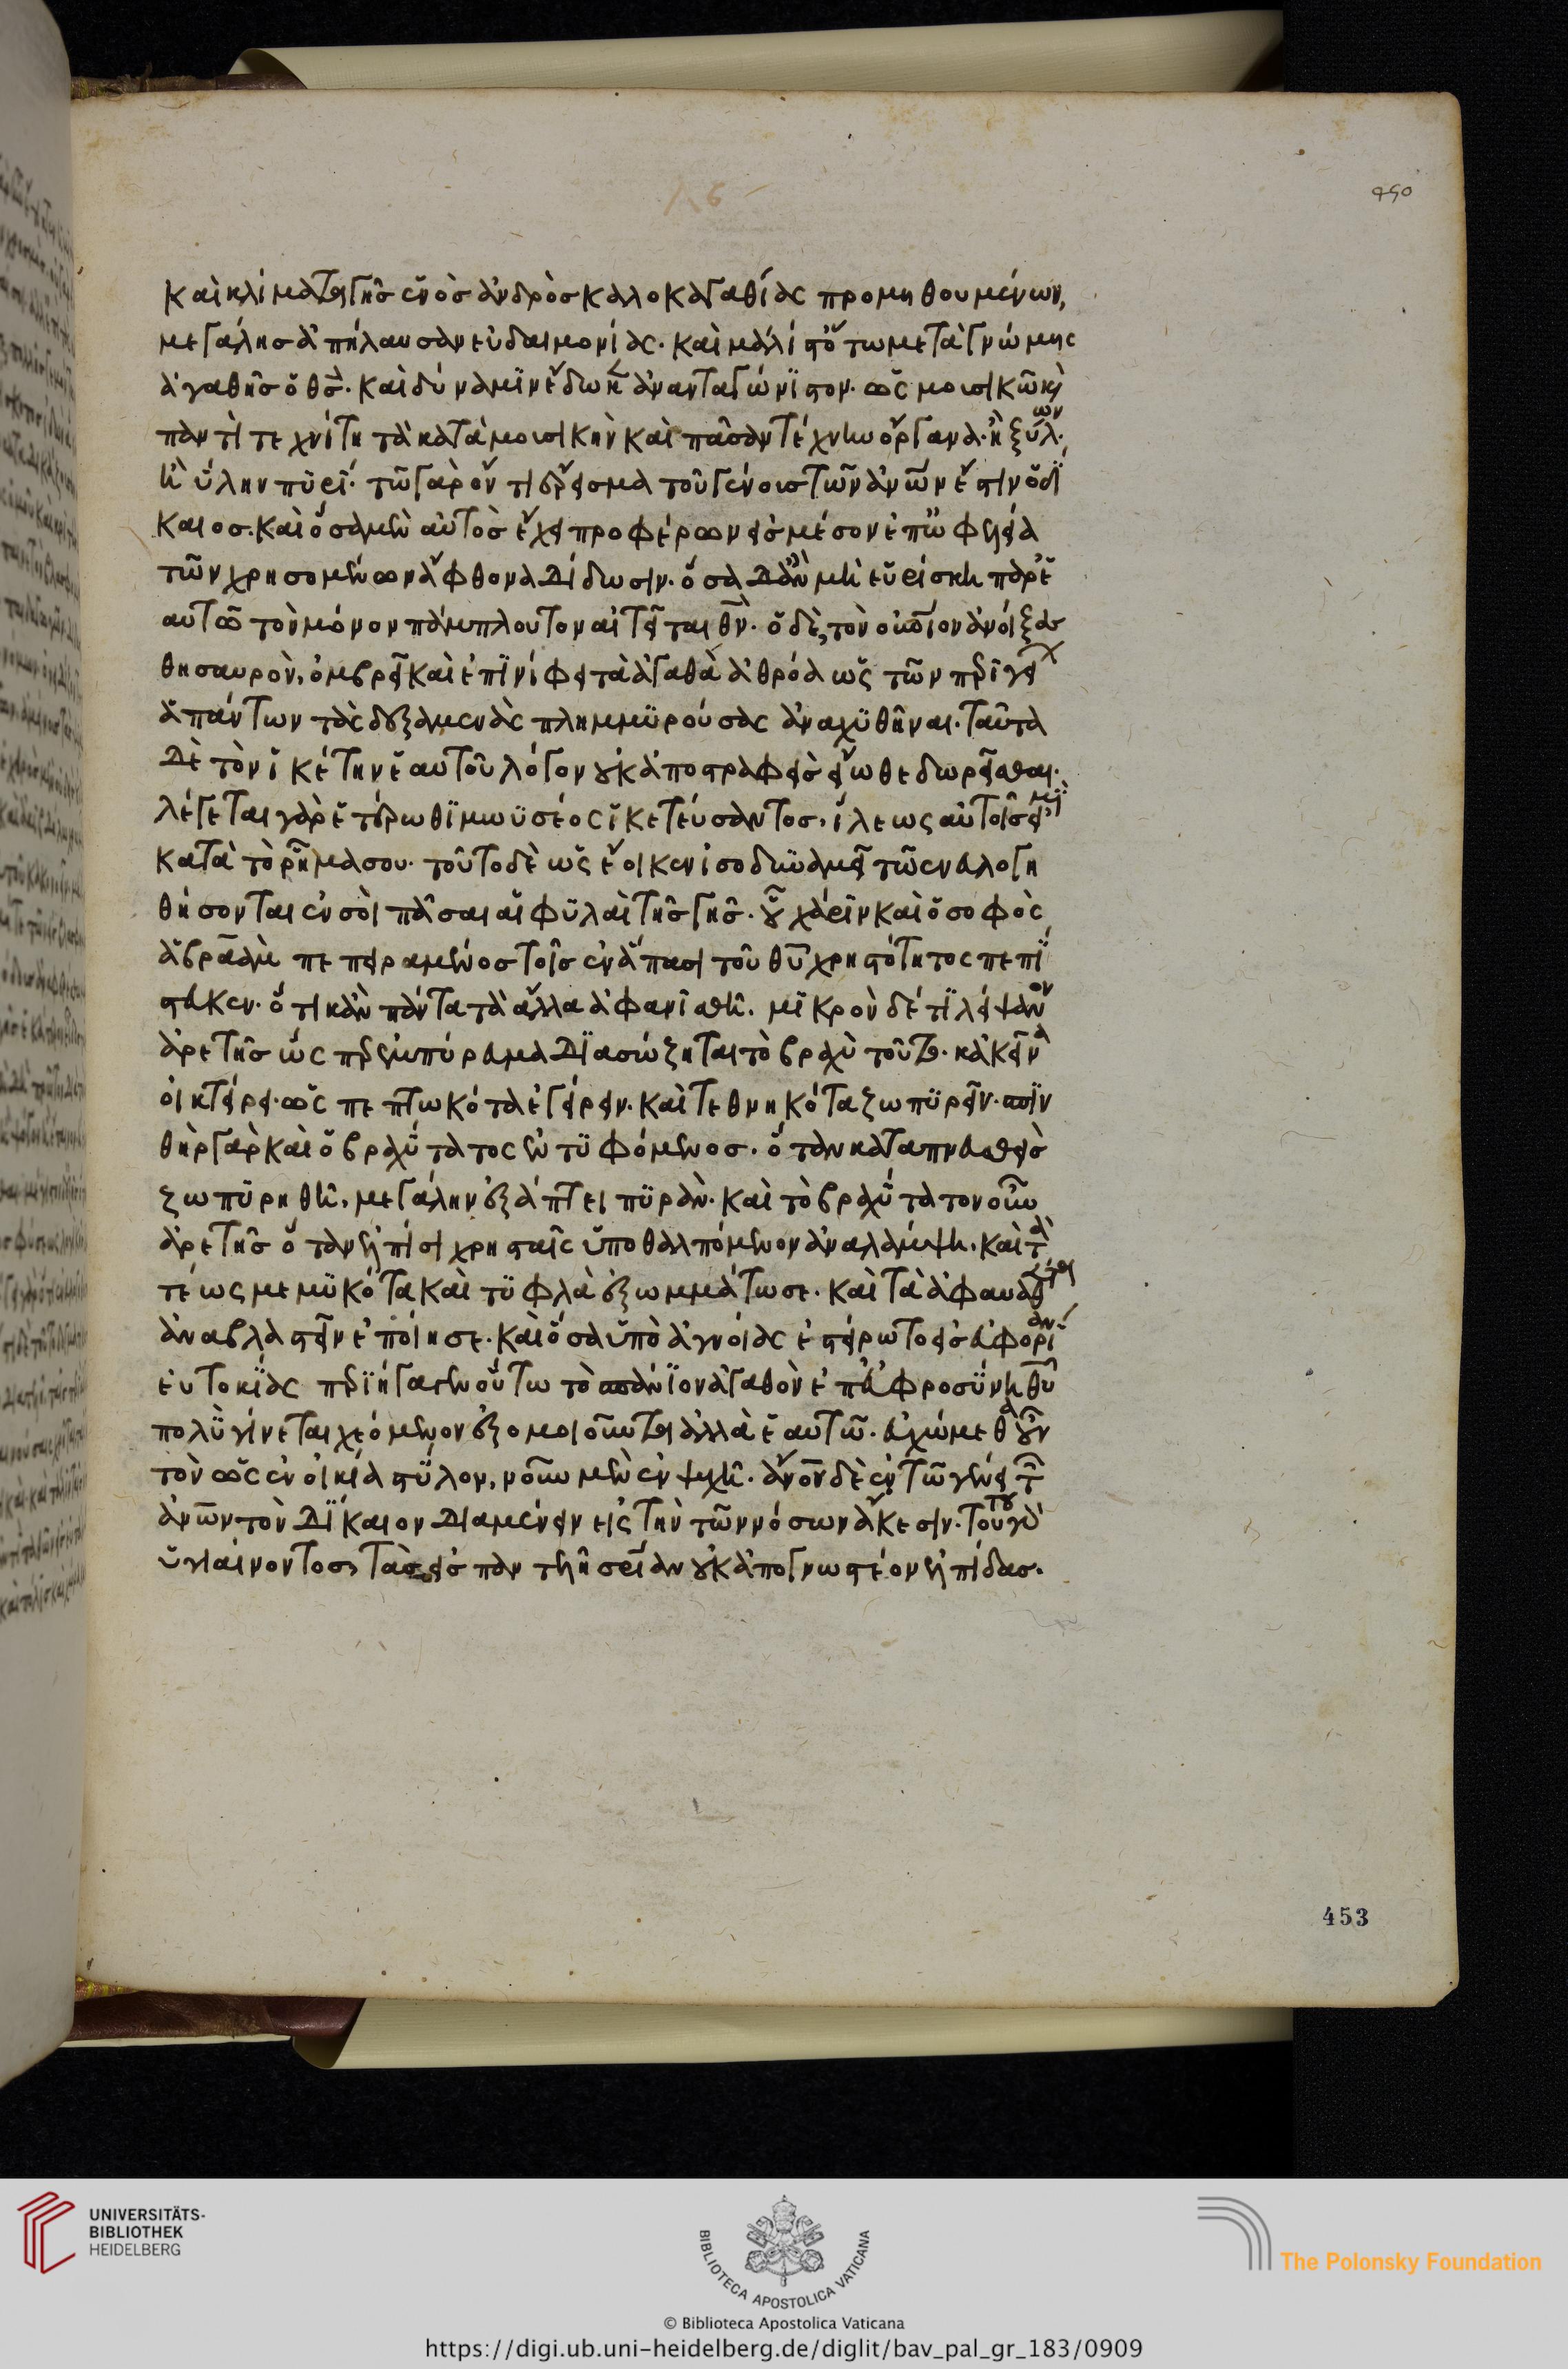 καὶ κλίματα γῆς ἑνὸς ἀνδρὸς καλοκἀγαθίας προμηθουμένων,
μεγάλης ἀπήλαυσαν εὐδαιμονίας. καὶ μάλιστ' ὅτω μετὰ γνώμης
ἀγαθῆς ὁ θσ. καὶ δύναμϊν ἔδωκ ἀνανταγώνϊστον. ὡς μουσικῶ κὶ
παντὶ τεχνίτη τὰ κατὰ μουσικὴν καὶ πᾶσαν τέχνην ὄργανα. ἢ ξύλων
ἢ ὕλην πϋρί. τῶ γὰρ ὄντι ἔρεισμα τοῦ γένους τῶν ἀνων ἐστὶν ὁ δί
καιος. καὶ ὅσα μὲν αὐτὸσ ἔχει προφέρων εἰσ μέσον ἐπ' ὠφελεία
τῶν χρησομένων ἄφθονα δίδωσιν. ὅσα δ' ἂν μὴ εὑρίσκη παρ' ἑ
αυτῶ τὸν μόνον πάμπλουτον αἰτεῖται θν. ὁ δὲ, τὸν οὐνιον ἀνοίξας
θησαυρὸν, ὀμβρεῖ καὶ ἐπϊνίφει τὰ ἀγαθὰ ἀθρόα ὡς τῶν πριγεί
ἁπάντων τὰς δεξαμενὰς πλημμϋρούσας ἀναχϋθῆναι. ταῦτα
δὲ τὸν ἱκέτην ἑαυτοῦ λόγον οὐκ ἀποστραφεὶσ εἴωθε δωρεῖσθαι.
λέγεται γὰρ ἑτέρωθϊ μωϋσέος ἱκετεύσαντος. ἵλεως αὐτοῖσ εἰμϊ
κατὰ τὸ ῥῆμα σου. τοῦτο δὲ ὡς ἔοικεν ἰσοδυναμεῖ τῶ ἐνευλογη
θήσονται ἐν σοὶ πᾶσαι αἱ φϋλαὶ τῆσ γῆσ. οὗ χάριν καὶ ὁ σοφὸς
ἀβραὰμ πεπειραμένος τοῖσ ἐν ἅπασι τοῦ θυ χρηστότητος πεπί
στευκεν. ὅτι κἂν πάντα τὰ ἄλλα ἀφανισθῆ. μϊκρὸν δέ τϊ λείψανον
ἀρετῆσ ὥσπρ ἐμπύρευμα δϊασώζηται τὸ βραχὺ τοῦτο. κἀκεῖνα
οἰκτείρει. ὡς πεπτωκότα ἐγείρειν. καὶ τεθνηκότα ζωπϋρεῖν. σπϊν
θὴρ γὰρ καὶ ὁ βραχύτατος ἐντϋφόμενος. ὅταν καταπνευσθεὶσ
ζωπϋρηθῆ, μεγάλην ἐξάπτει πϋράν. καὶ τὸ βραχύτατον οὖν
ἀρετῆσ ὅταν ἐλπίσι χρησταῖς ὑποθαλπόμενον ἀναλάμψη. καὶ τὰ
τέως μεμϋκότα καὶ τϋφλὰ ἐξωμμάτωσε. καὶ τὰ ἀφαυαν
ἀναβλαστεῖν ἐποίησε. καὶ ὅσα ὑπὸ ἀγνοίας ἐστείρωτο εἰσ εὐφορίαν
εὐτοκίας πρϊήγαγεν οὕτω τὸ σπάνϊον ἀγαθὸν ἐπ' εὐφροσύνη θυ
πολὺ γίνεται χεόμενον ἐξομοιοῦν τὰ ἀλλὰ ἑαυτῶ. εὐχώμεθα οὖν
τὸν ὡς ἐν οἰκία στύλον, νοῦν μὲν ἐν ψυχῆ. ἄνον δὲ ἐν τῶ γένει τ
ἀνων τὸν δίκαιον διαμένειν εἰς τὴν τῶν νόσων ἄκεσιν. τούτου γὰρ
ὑγιαίνοντος, τὰς εἰσ παντελῆ σρίαν οὐκ ἀπογνωστέον ἐλπίδασ.
450
453
UNIVERSITÄTS-
BIBLIOTHEK
HEIDELBERG
BIBLIOTECA APOSTOLICA VATICANA
The Polonsky Foundation
© Biblioteca Apostolica Vaticana
https://digi.ub.uni-heidelberg.de/diglit/bav_pal_gr_183/0909